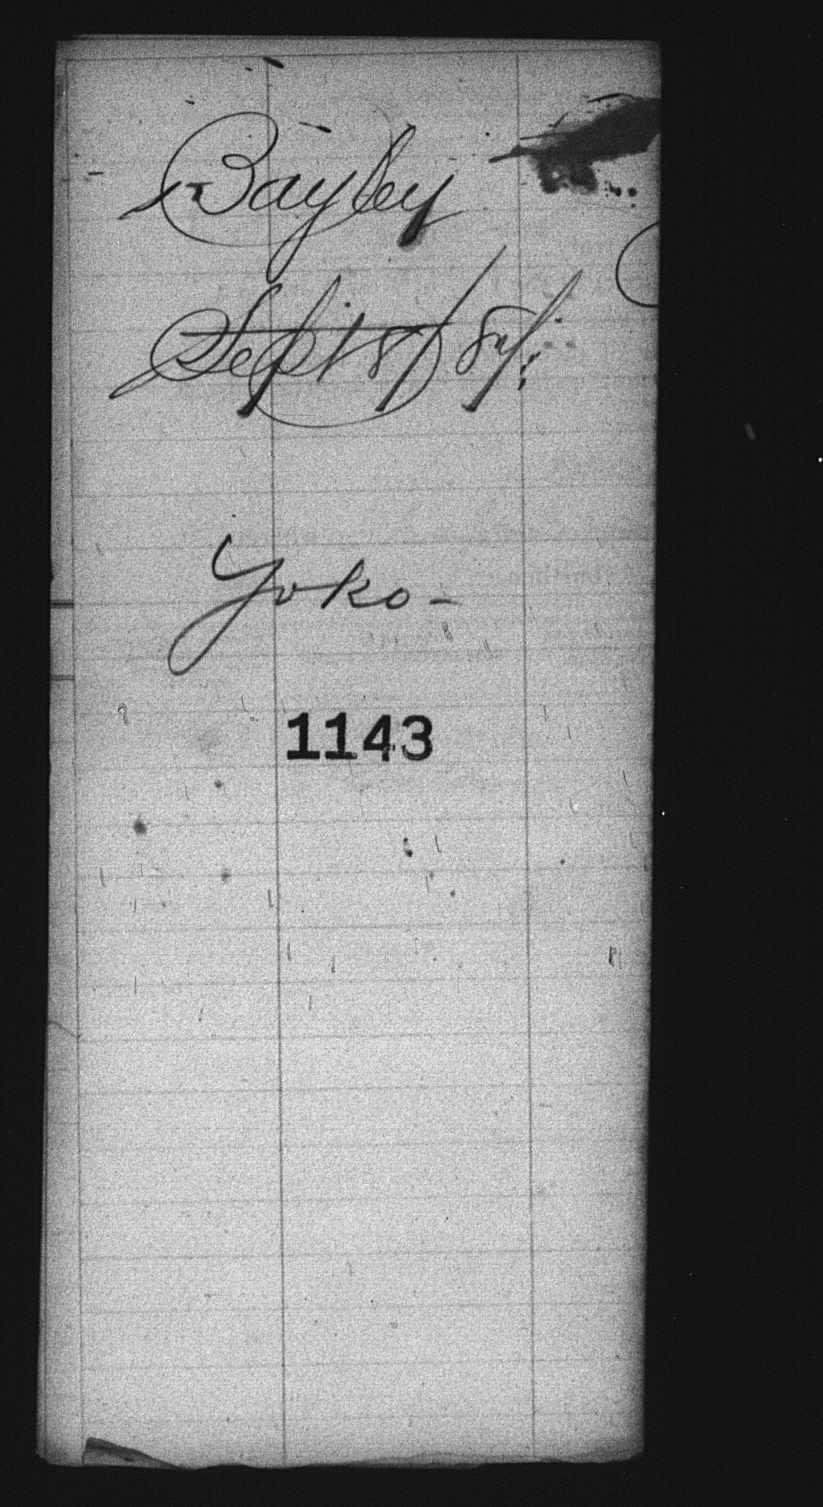 Bayley
Sept 8/84
Yoko-
1143